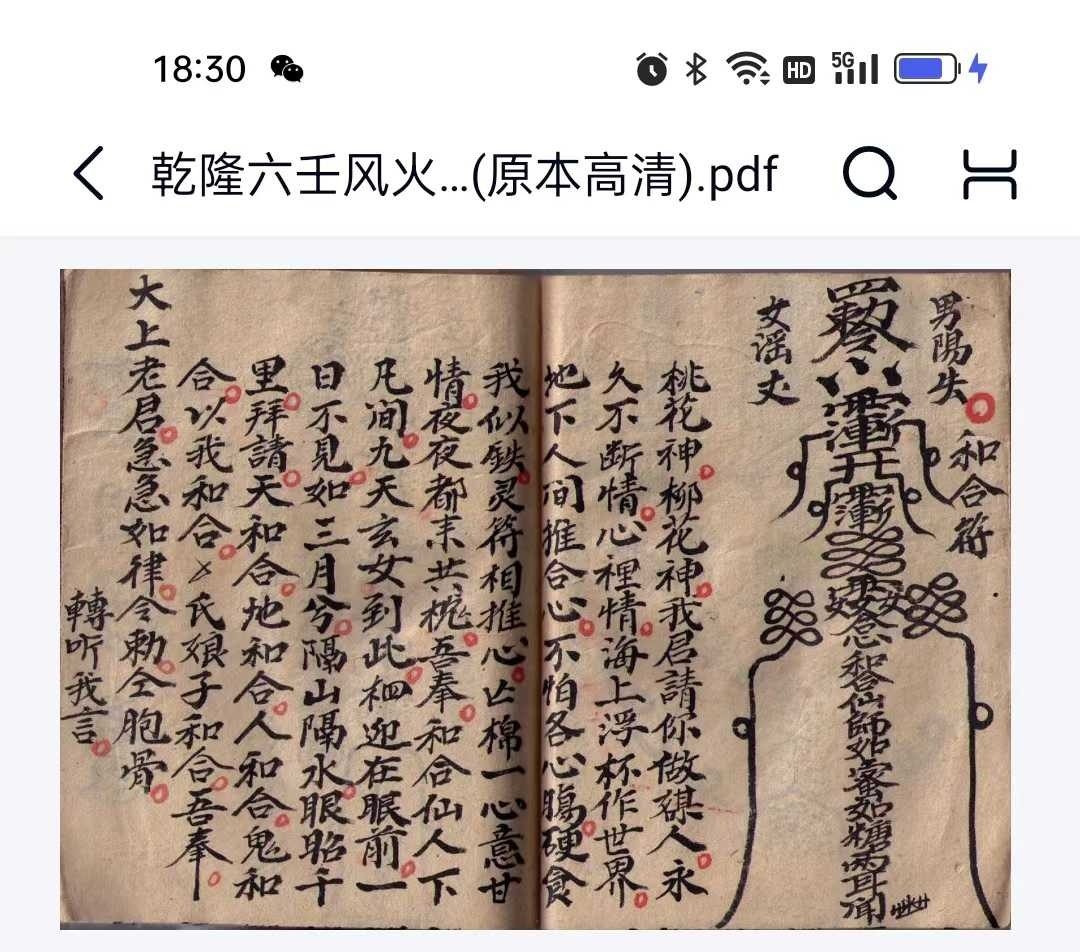 18:30
HD 5G
乾隆六壬风火...(原本高清).pdf
男陽失
和合符
女谣丈
和合仙師如蜜如糖
桃花神柳花神我君請你做媒人永
久不断情心裡情海上浮杯作世界
地下人间推合心不怕各心腸硬食
我似鉄灵符相推心亡棉一心意甘
情夜夜都来共枕吾奉和合仙人下
凡间九天玄女到此栖迎在眼前一
日不見如三月兮隔山隔水眼昭千
里拜請天和合地和合人和合鬼和
合以我和合氏娘子和合吾奉
大上老君急急如律令勅仝胞骨
轉听我言